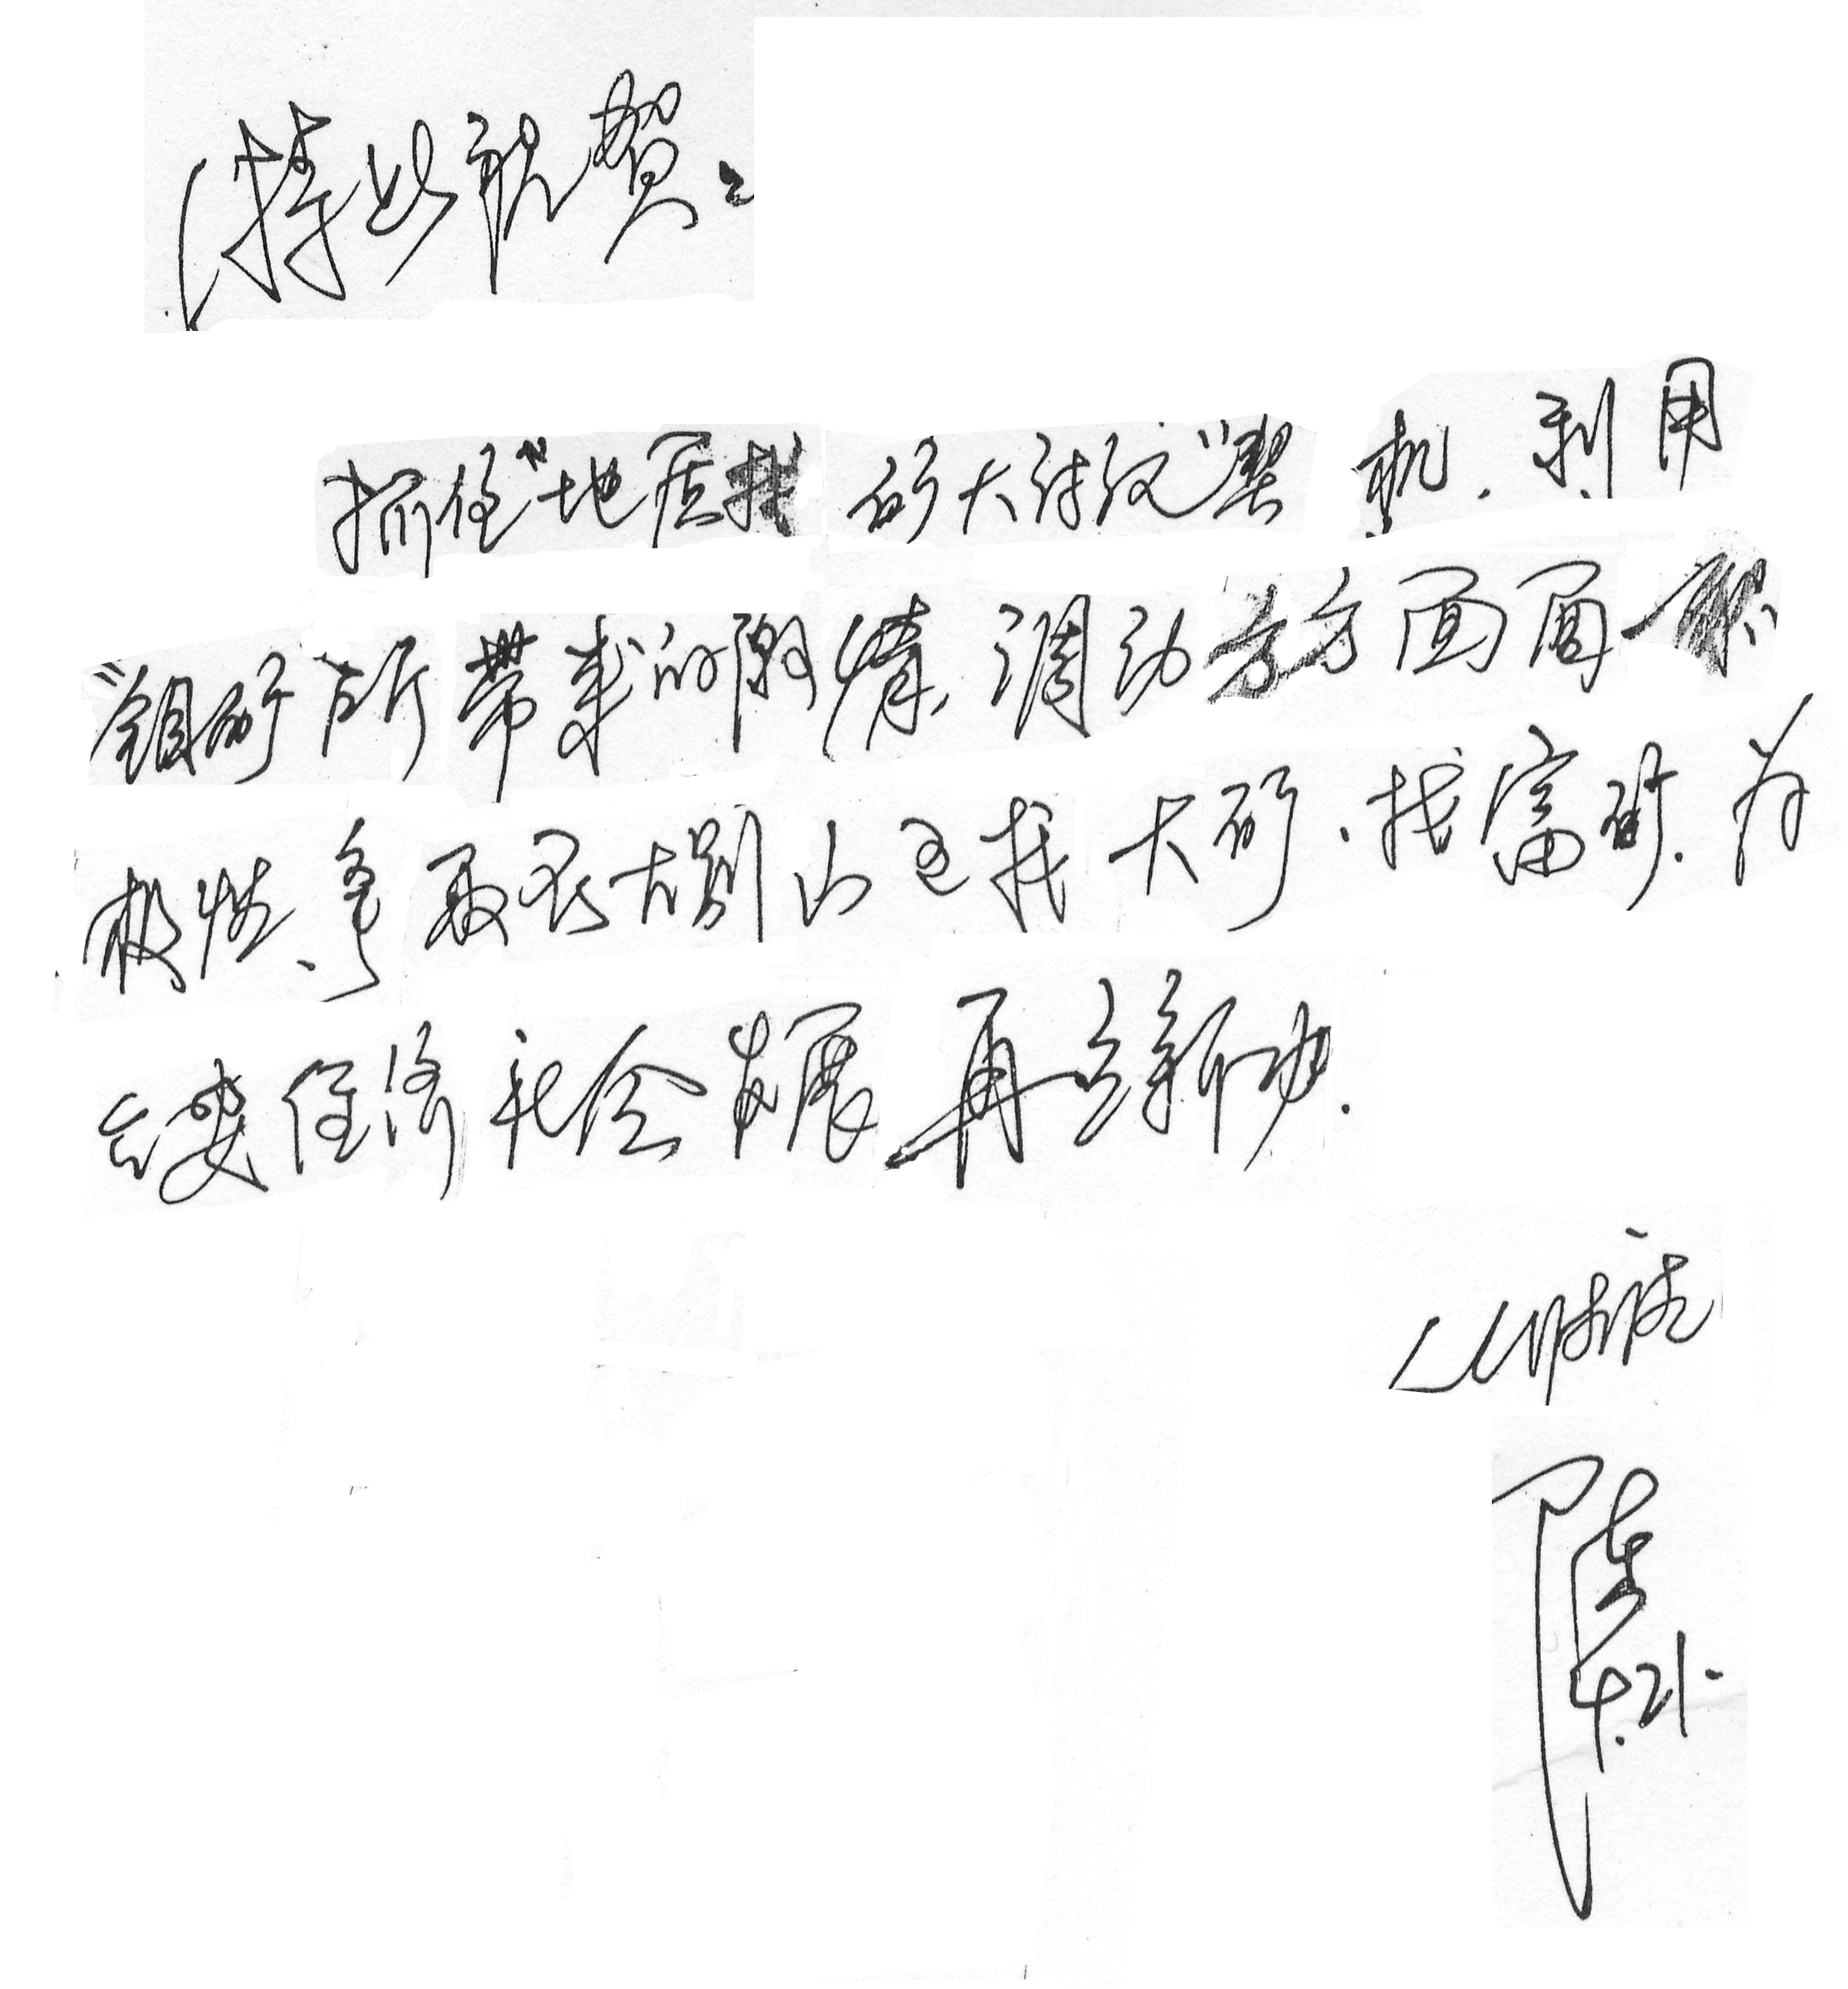 特此祝贺。
抓住“地质找矿大讨论”契机，利用
“钼矿”所带来的激情，调动方方面面积
极性、争取在大别山区找大矿、找富矿，为
安徽经济社会发展再立新功。
4.21.